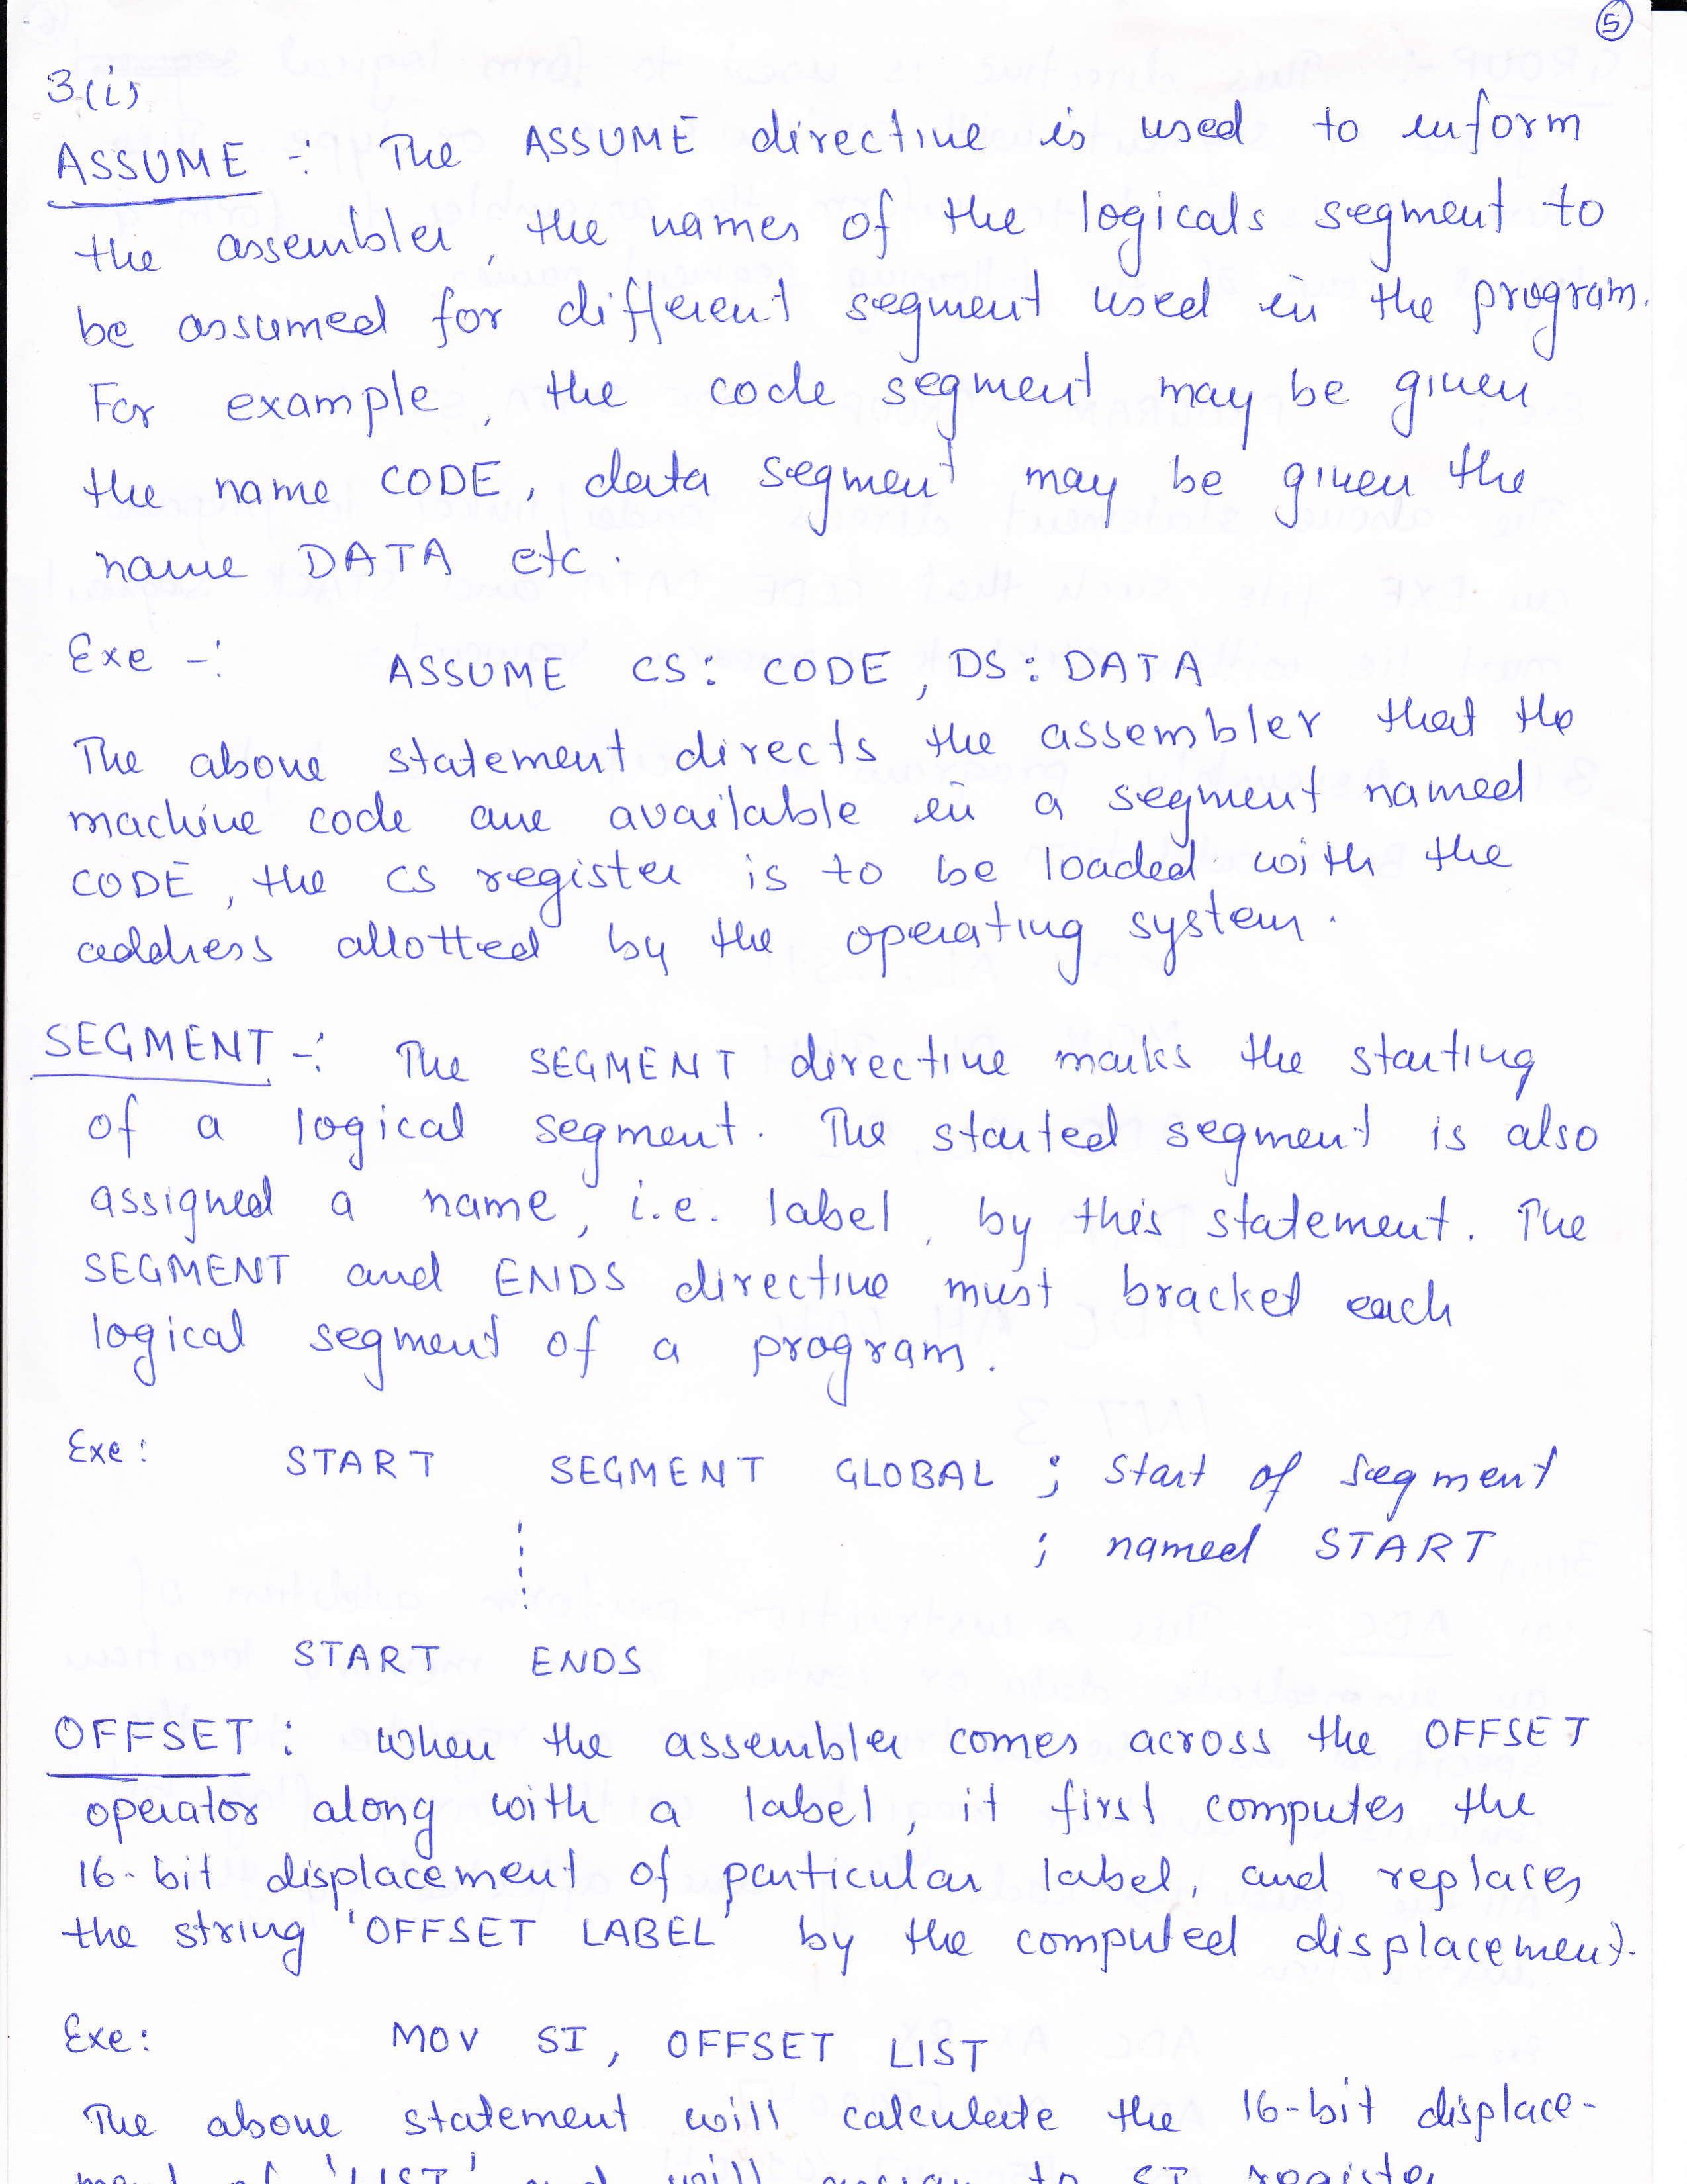 5
3(i)
ASSUME -: The ASSUME directive is used to inform
the assembler, the names of the logicals segment to
be assumed for different segment used in the program.
For example, the code segment may be given
the name CODE, data segment may be given the
name DATA etc.
Exe -: ASSUME CS: CODE, DS: DATA
The above statement directs the assembler that the
machine code are available in a segment named
CODE, the CS register is to be loaded with the
address allotted by the operating system.
SEGMENT -: The SEGMENT directive marks the starting
of a logical segment. The started segment is also
assigned a name, i.e. label, by this statement. The
SEGMENT and ENDS directive must bracket each
logical segment of a program.
Exe: START SEGMENT GLOBAL ; Start of segment
; named START
START ENDS
OFFSET: When the assembler comes across the OFFSET
operator along with a label, it first computes the
16-bit displacement of particular label, and replaces
the string 'OFFSET LABEL' by the computed displacement.
Exe: MOV SI, OFFSET LIST
The above statement will calculate the 16-bit displace-
ment of 'LIST' and will assign to SI register